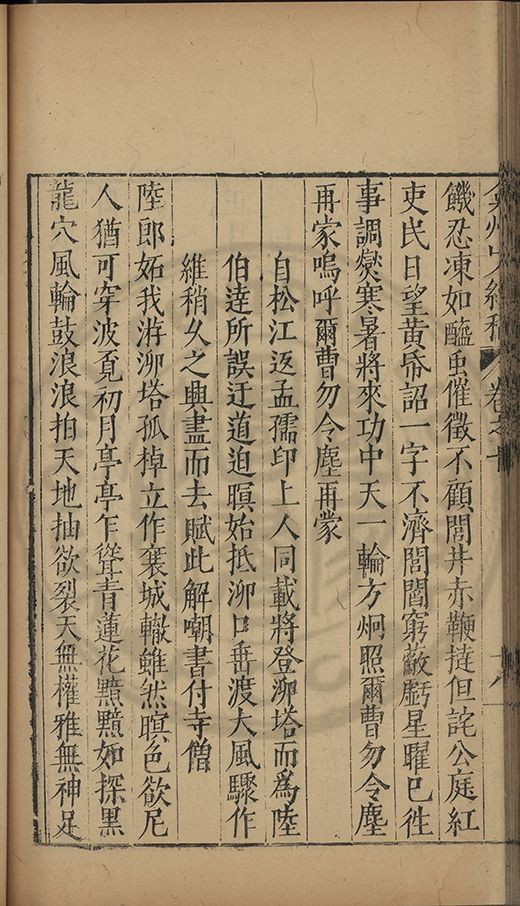 弇州山人續稿 卷之十 十八
饑忍凍如醯䖝催徵不顧閭井赤鞭撻但詫公庭紅
吏民日望黃帋詔一字不濟閭閻窮蔽虧星曜已徃
事調燮寒暑將來功中天一輪方炯照爾曹勿令塵
再蒙嗚呼爾曹勿令塵再蒙
自松江返孟孺印上人同載將登泖塔而為陸
伯逹所誤迂道迫暝始抵泖口垂渡大風驟作
維稍久之興盡而去賦此解嘲書付寺僧
陸郎妬我游泖塔孤棹立作襄城轍雖然暝色欲尼
人猶可穿波覔初月亭亭乍聳青蓮花黯黯如探黑
龍穴風輪鼓浪浪拍天地抽欲裂天無權雅無神足